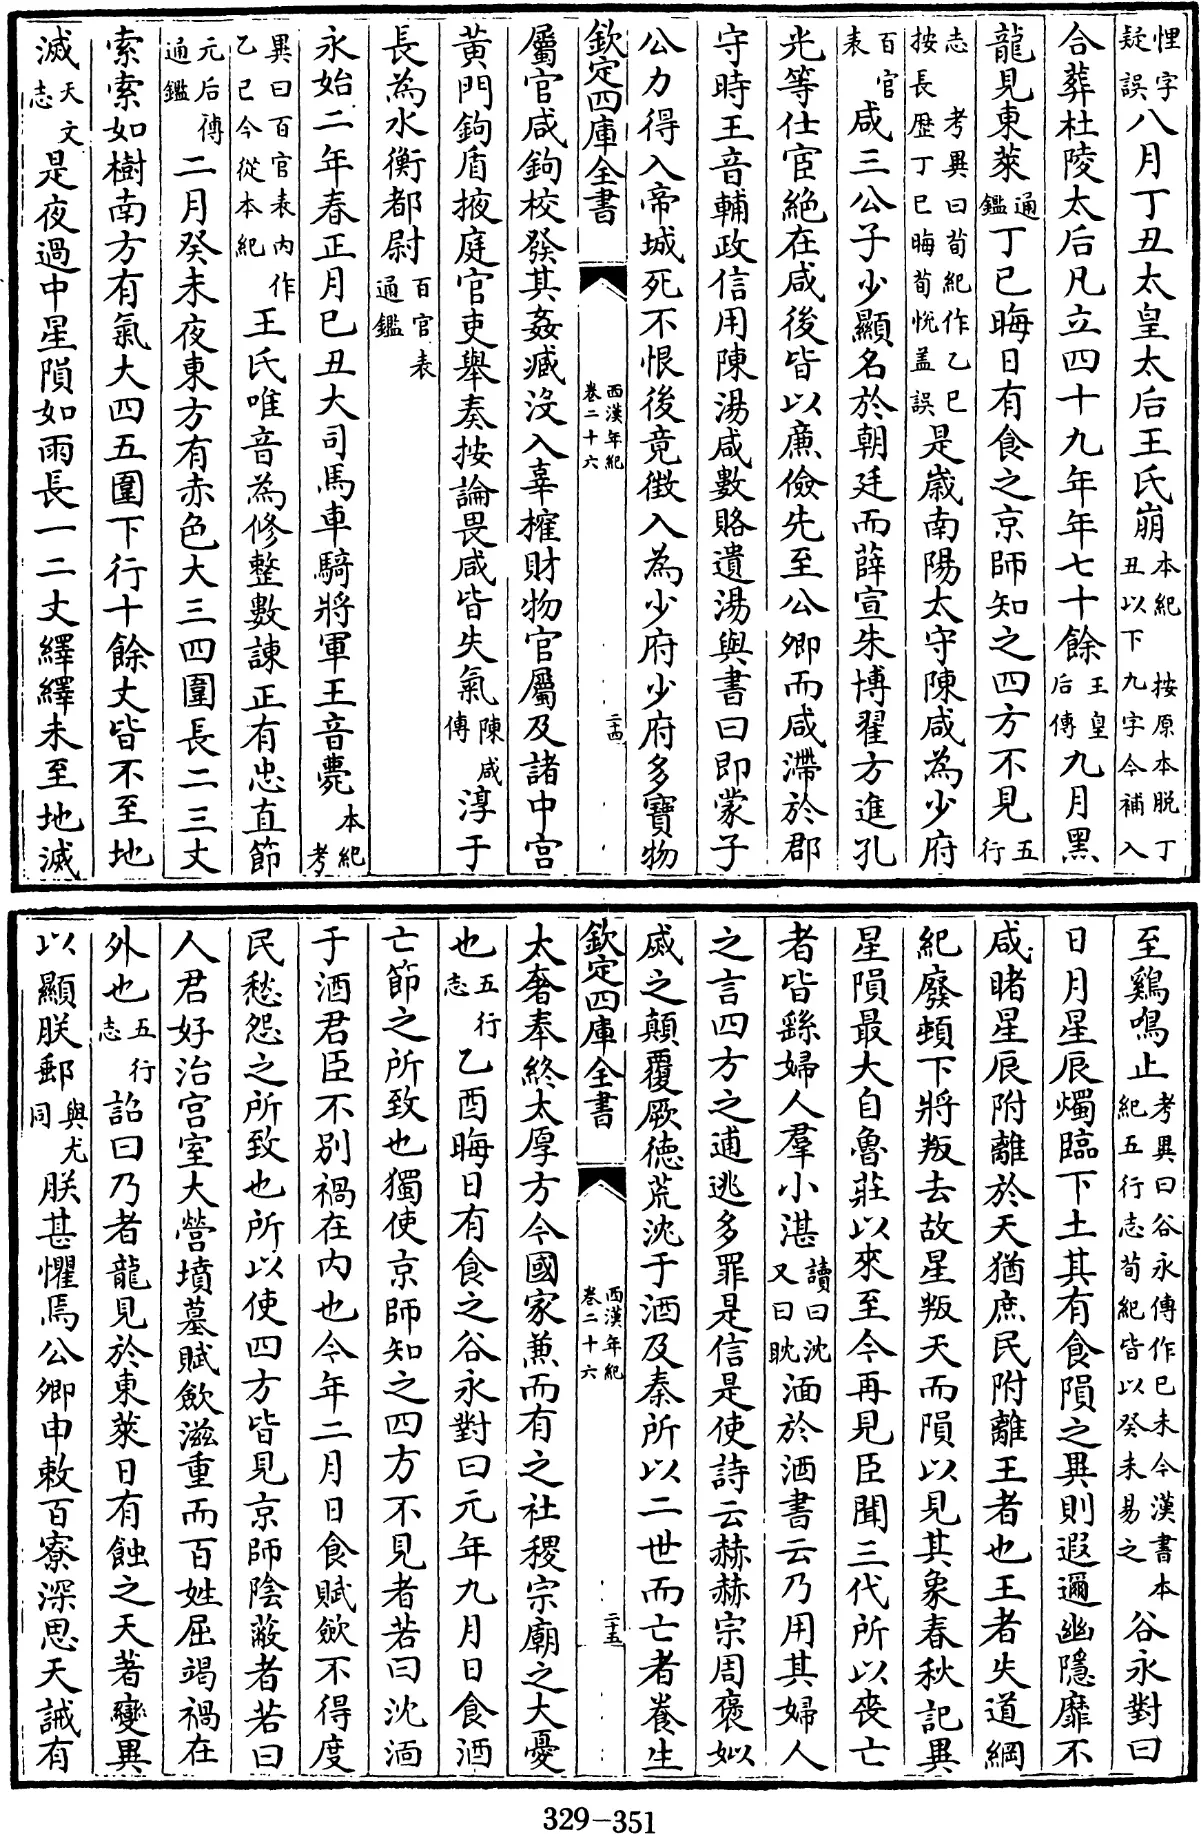 悝字疑誤八月丁丑太皇太后王氏崩本紀 按原本脱丁丑以下九字今補入
合葬杜陵太后凡立四十九年年七十餘王皇后傳九月黑
龍見東萊通鑑丁巳晦日有食之京師知之四方不見五行
志 考異曰荀紀作乙巳按長歴丁巳晦荀悦盖誤是歲南陽太守陳咸為少府
百官表咸三公子少顯名於朝廷而薛宣朱博翟方進孔
光等仕宦絶在咸後皆以亷儉先至公卿而咸滯於郡
守時王音輔政信用陳湯咸數賂遺湯與書曰即蒙子
公力得入帝城死不恨後竟徴入為少府少府多寶物
欽定四庫全書 西漢年紀卷二十六 二十四
屬官咸鉤校發其姦臧没入辜榷財物官屬及諸中宫
黄門鉤盾掖庭官吏舉奏按論畏咸皆失氣陳咸傳淳于
長為水衡都尉百官表通鑑
永始二年春正月巳丑大司馬車騎將軍王音薨本紀考
異曰百官表内作乙巳今從本紀王氏唯音為修整數諫正有忠直節
元后傳通鑑二月癸未夜東方有赤色大三四圍長二三丈
索索如樹南方有氣大四五圍下行十餘丈皆不至地
滅天文志是夜過中星隕如雨長一二丈繹繹未至地滅
至鷄鳴止考異曰谷永傳作巳未今漢書本紀五行志荀紀皆以癸未易之谷永對曰
日月星辰燭臨下土其有食隕之異則遐邇幽隱靡不
咸睹星辰附離於天猶庶民附離王者也王者失道綱
紀廢頓下將叛去故星叛天而隕以見其象春秋記異
星隕最大自魯莊以來至今再見臣聞三代所以喪亡
者皆繇婦人羣小湛讀曰沈又曰耽湎於酒書云乃用其婦人
之言四方之逋逃多罪是信是使詩云赫赫宗周褒姒
威之顛覆厥徳荒沈于酒及秦所以二世而亡者養生
欽定四庫全書 西漢年紀卷二十六 二十五
太奢奉終太厚方今國家兼而有之社稷宗廟之大憂
也五行志乙酉晦日有食之谷永對曰元年九月日食酒
亡節之所致也獨使京師知之四方不見者若曰沈湎
于酒君臣不别禍在内也今年二月日食賦歛不得度
民愁怨之所致也所以使四方皆見京師隂蔽者若曰
人君好治宫室大營墳墓賦歛滋重而百姓屈竭禍在
外也五行志詔曰乃者龍見於東萊日有蝕之天著變異
以顯朕郵與尤同朕甚懼焉公卿申敕百寮深思天誡有
329-351